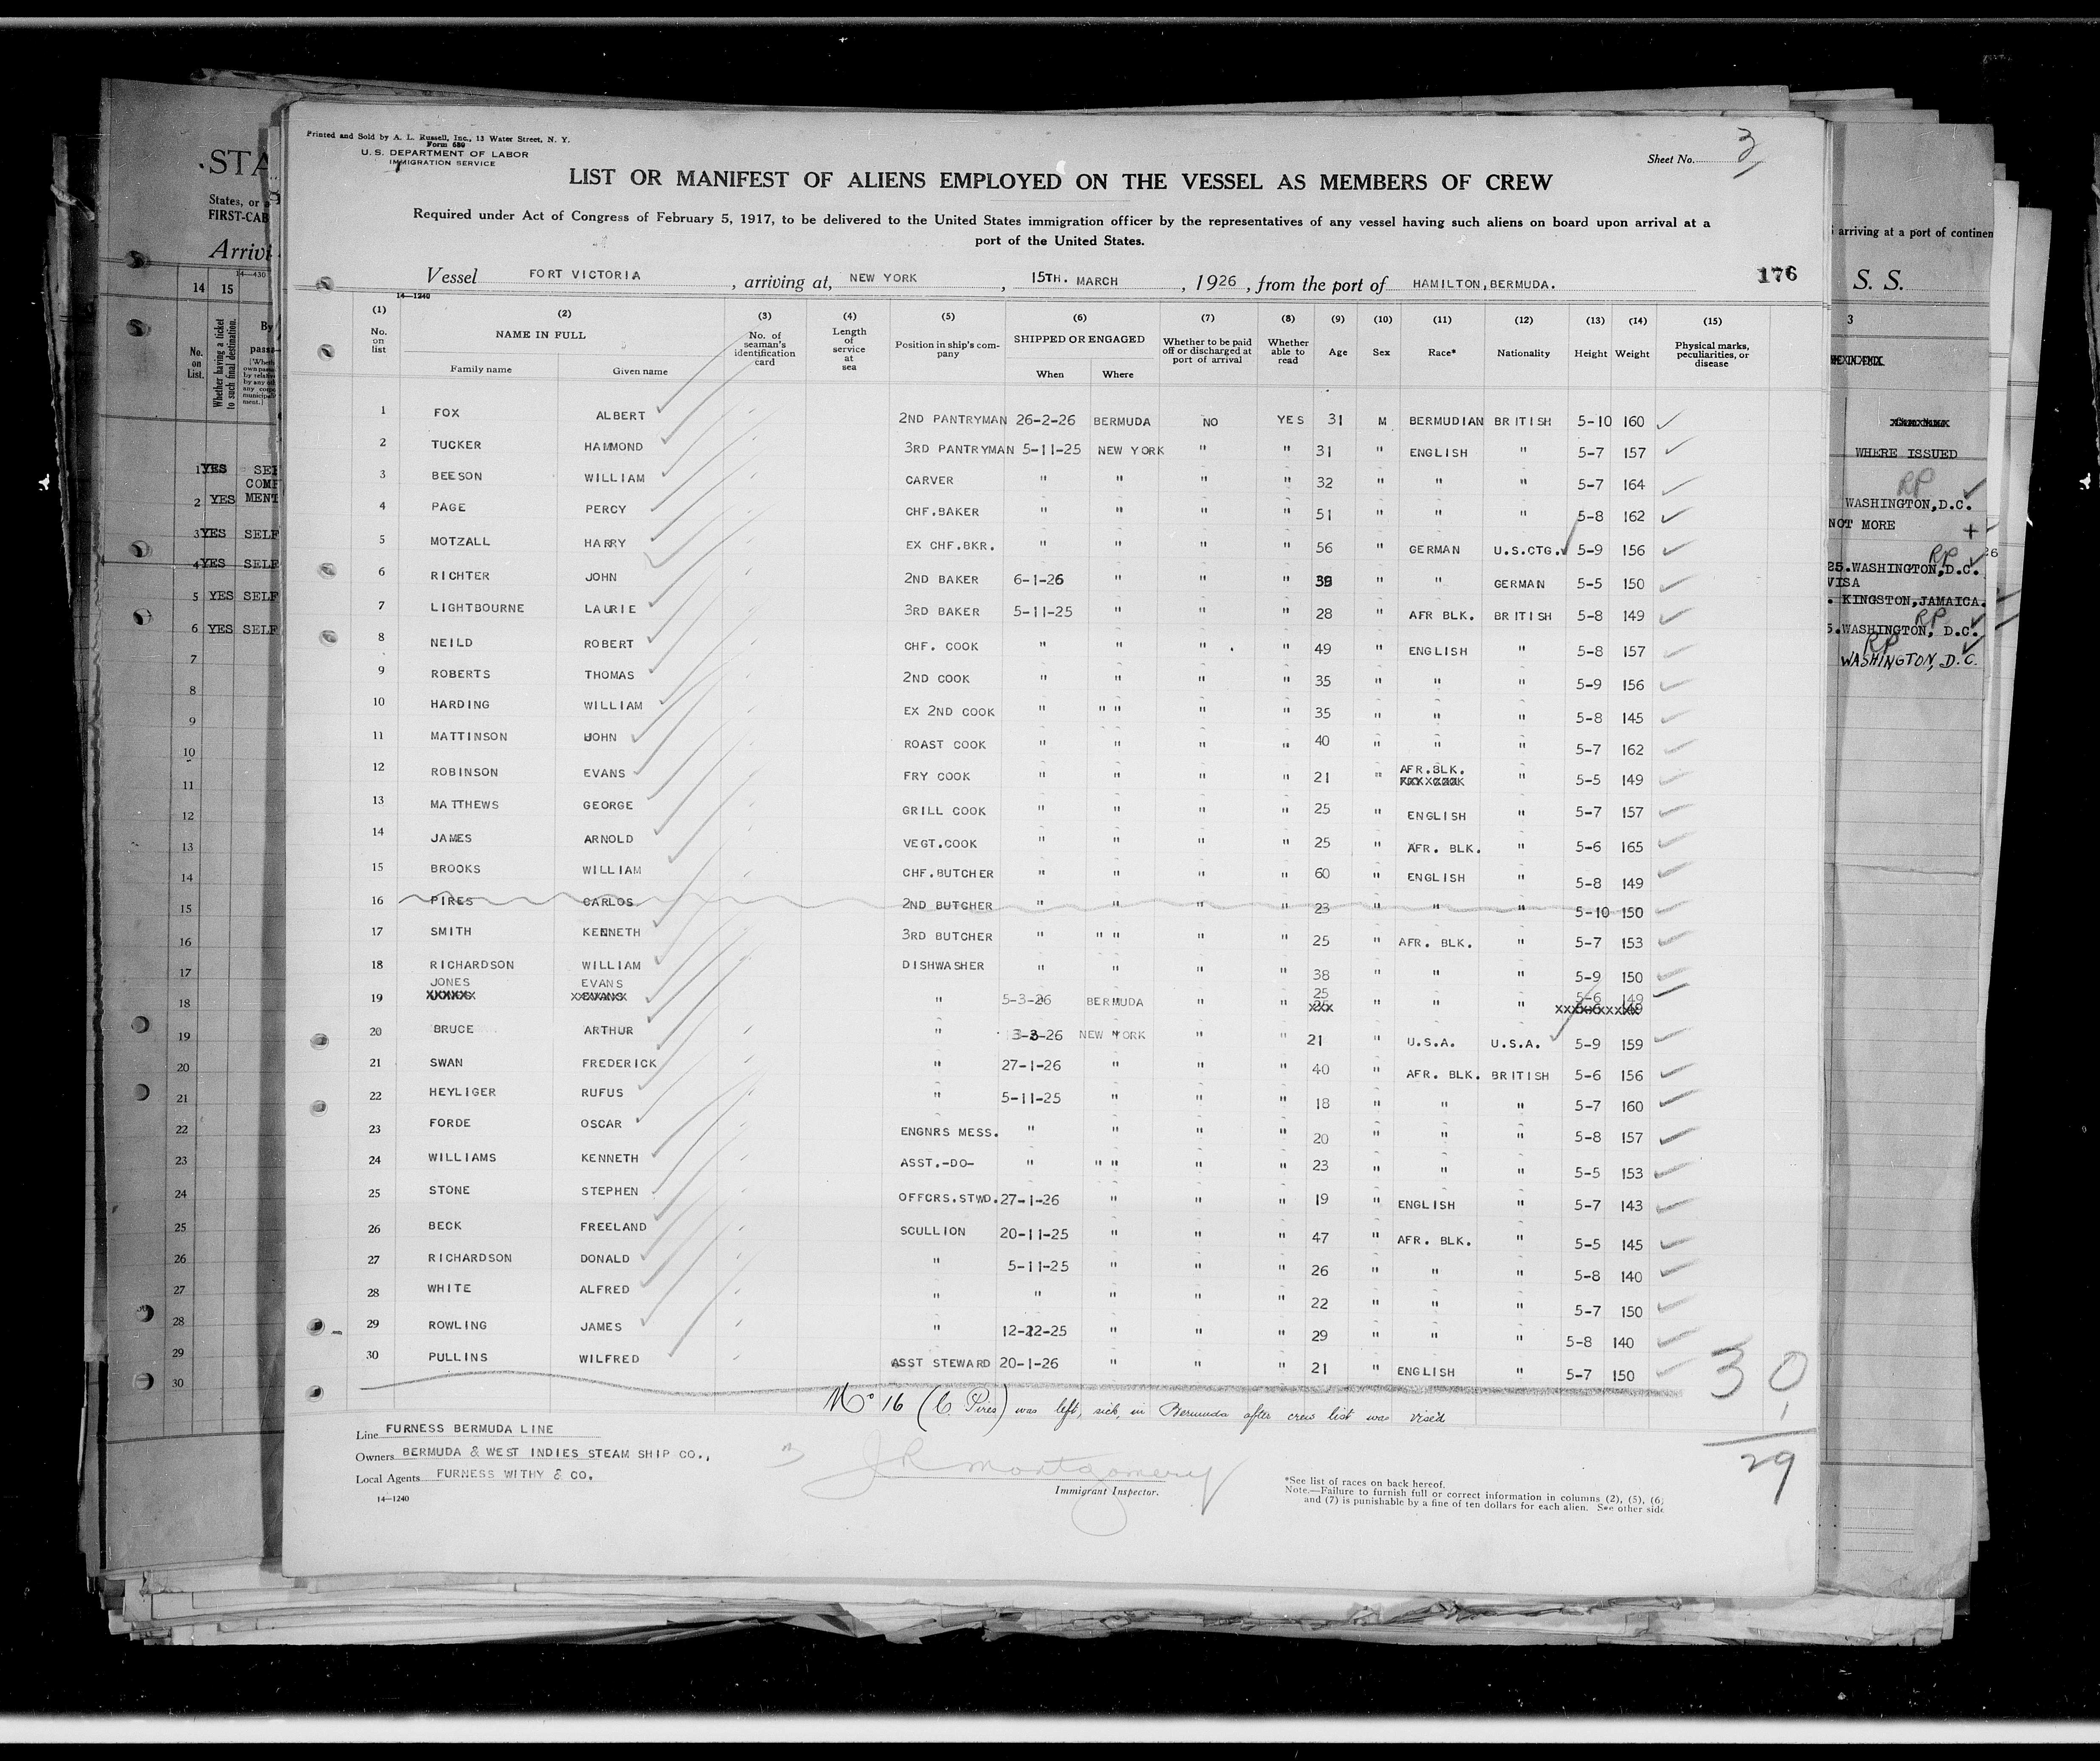 Printed and Sold by A. L. Russell, Inc., 13 Water Street, N. Y.
Form 689
U. S. DEPARTMENT OF LABOR
IMMIGRATION SERVICE
Sheet No. 3
LIST OR MANIFEST OF ALIENS EMPLOYED ON THE VESSEL AS MEMBERS OF CREW
Required under Act of Congress of February 5, 1917, to be delivered to the United States immigration officer by the representatives of any vessel having such aliens on board upon arrival at a
port of the United States.
Vessel FORT VICTORIA, arriving at, NEW YORK, 15TH. MARCH, 1926, from the port of HAMILTON, BERMUDA. 176
14—1240
(1) (2) (3) (4) (5) (6) (7) (8) (9) (10) (11) (12) (13) (14) (15)
No. on list NAME IN FULL Family name Given name No. of seaman's identification card Length of service at sea Position in ship's company SHIPPED OR ENGAGED When Where Whether to be paid off or discharged at port of arrival Whether able to read Age Sex Race* Nationality Height Weight Physical marks, peculiarities, or disease
1 FOX ALBERT 2ND PANTRYMAN 26-2-26 BERMUDA NO YES 31 M BERMUDIAN BRITISH 5-10 160
2 TUCKER HAMMOND 3RD PANTRYMAN 5-11-25 NEW YORK " " 31 " ENGLISH " 5-7 157
3 BEESON WILLIAM CARVER " " " " 32 " " " 5-7 164
4 PAGE PERCY CHF.BAKER " " " " 51 " " " 5-8 162
5 MOTZALL HARRY EX CHF.BKR. " " " " 56 " GERMAN U.S.CTG. 5-9 156
6 RICHTER JOHN 2ND BAKER 6-1-26 " " " " " GERMAN 5-5 150
7 LIGHTBOURNE LAURIE 3RD BAKER 5-11-25 " " " 28 " AFR BLK. BRITISH 5-8 149
8 NEILD ROBERT CHF. COOK " " " " 49 " ENGLISH " 5-8 157
9 ROBERTS THOMAS 2ND COOK " " " " 35 " " " 5-9 156
10 HARDING WILLIAM EX 2ND COOK " " " " " 35 " " " 5-8 145
11 MATTINSON JOHN ROAST COOK " " " " 40 " " " 5-7 162
12 ROBINSON EVANS FRY COOK " " " " 21 " AFR.BLK. " 5-5 149
13 MATTHEWS GEORGE GRILL COOK " " " " 25 " ENGLISH " 5-7 157
14 JAMES ARNOLD VEGT.COOK " " " " 25 " AFR. BLK. " 5-6 165
15 BROOKS WILLIAM CHF.BUTCHER " " " " 60 " ENGLISH " 5-8 149
16 PIRES CARLOS 2ND BUTCHER " " " " 23 " " " 5-10 150
17 SMITH KENNETH 3RD BUTCHER " " " " " 25 " AFR. BLK. " 5-7 153
18 RICHARDSON WILLIAM DISHWASHER " " " " 38 " " " 5-9 150
19 JONES EVANS " 5-3-26 BERMUDA " " 25 " " " 5-6 149
20 BRUCE ARTHUR " 3-3-26 NEW YORK " " 21 " U.S.A. U.S.A. 5-9 159
21 SWAN FREDERICK " 27-1-26 " " " 40 " AFR. BLK. BRITISH 5-6 156
22 HEYLIGER RUFUS " 5-11-25 " " " 18 " " " 5-7 160
23 FORDE OSCAR ENGNRS MESS. " " " " 20 " " " 5-8 157
24 WILLIAMS KENNETH ASST.-DO- " " " " " 23 " " " 5-5 153
25 STONE STEPHEN OFFCRS.STWD. 27-1-26 " " " 19 " ENGLISH " 5-7 143
26 BECK FREELAND SCULLION 20-11-25 " " " 47 " AFR. BLK. " 5-5 145
27 RICHARDSON DONALD " 5-11-25 " " " 26 " " " 5-8 140
28 WHITE ALFRED " " " " " 22 " " " 5-7 150
29 ROWLING JAMES " 12-12-25 " " " 29 " " " 5-8 140
30 PULLINS WILFRED ASST STEWARD 20-1-26 " " " 21 " ENGLISH " 5-7 150
30
1
29
No 16 (C. Pires) was left, sick, in Bermuda after crew list was vise'd
Line FURNESS BERMUDA LINE
Owners BERMUDA & WEST INDIES STEAM SHIP CO.,
Local Agents FURNESS WITHY & CO.
14—1240
J R Montgomery
Immigrant Inspector.
*See list of races on back hereof.
Note.—Failure to furnish full or correct information in columns (2), (5), (6)
and (7) is punishable by a fine of ten dollars for each alien. See other side
STA
States, or
FIRST-CAB
Arrivi
14—430
14 15
No. on List.
Whether having a ticket to such final destination.
By
passa
1 YES SEL
COMP
2 YES MENT
3 YES SELF
4 YES SELF
5 YES SELF
6 YES SELF
7
8
9
10
11
12
13
14
15
16
17
18
19
20
21
22
23
24
25
26
27
28
29
30
arriving at a port of continen
S. S.
3
WHERE ISSUED
RP
WASHINGTON,D.C.
NOT MORE
RP
25.WASHINGTON,D.C.
VISA
KINGSTON,JAMAICA.
RP
5.WASHINGTON, D.C.
RP
WASHINGTON, D.C.